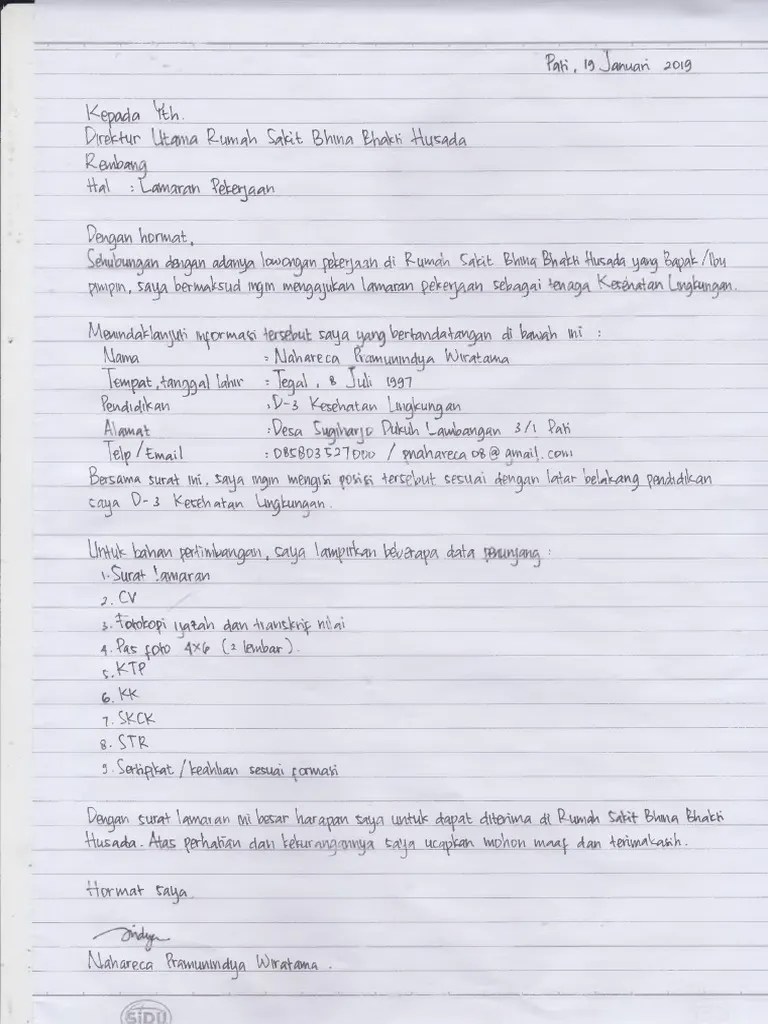 Pati, 19 Januari 2019
Kepada Yth.
Direktur Utama Rumah Sakit Bhina Bhakti Husada
Rembang
Hal : Lamaran Pekerjaan
Dengan hormat,
Sehubungan dengan adanya lowongan pekerjaan di Rumah Sakit Bhina Bhakti Husada yang Bapak/Ibu
pimpin, saya bermaksud ingin mengajukan lamaran pekerjaan sebagai tenaga Kesehatan Lingkungan.
Menindaklanjuti informasi tersebut saya yang bertandatangan di bawah ini :
Nama : Nahareca Pramunindya Wiratama
Tempat, tanggal lahir : Tegal, 8 Juli 1997
Pendidikan : D-3 Kesehatan Lingkungan
Alamat : Desa Sugiharjo Dukuh Lambangan 3/1 Pati
Telp/Email : 085803527000 / pnahareca08@gmail.com
Bersama surat ini, saya ingin mengisi posisi tersebut sesuai dengan latar belakang pendidikan
saya D-3 Kesehatan Lingkungan.
Untuk bahan pertimbangan, saya lampirkan beberapa data penunjang :
1. Surat lamaran
2. CV
3. Fotokopi ijazah dan transkrif nilai
4. Pas foto 4x6 (2 lembar).
5. KTP
6. KK
7. SKCK
8. STR
9. Sertifikat / keahlian sesuai formasi
Dengan surat lamaran ini besar harapan saya untuk dapat diterima di Rumah Sakit Bhina Bhakti
Husada. Atas perhatian dan kekurangannya saya ucapkan mohon maaf dan terimakasih.
Hormat saya
Nahareca Pramunindya Wiratama.
SIDU